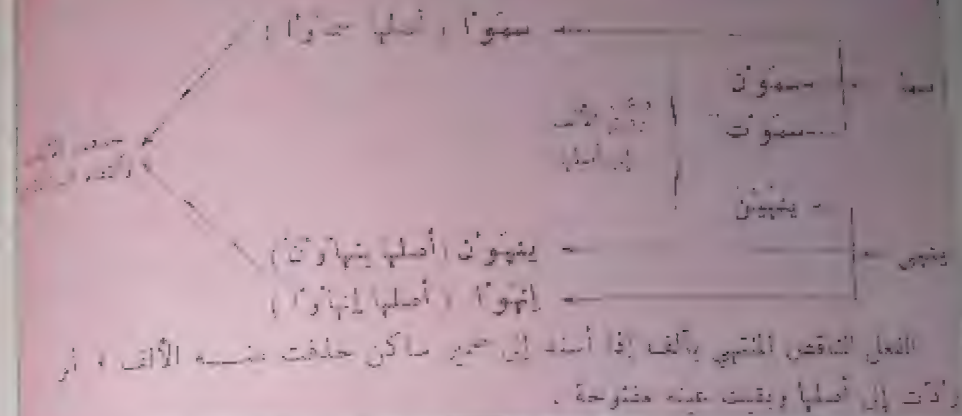 سموْا ( أصلها سماوْا )
سما
سموْن
سموْت
تُردّ الألف
إلى أصلها
حذف الألف
ينهيْن
ينهى
ينهوْن ( أصلها ينهاوْن )
إنهوْا ( أصلها إنهاوْا )
الفعل الناقص المنتهي بألف إذا أسند إلى ضمير ساكن حذفت منـه الألف ، أو
ردّت إلى أصلها وبقيت عينه مفتوحة .